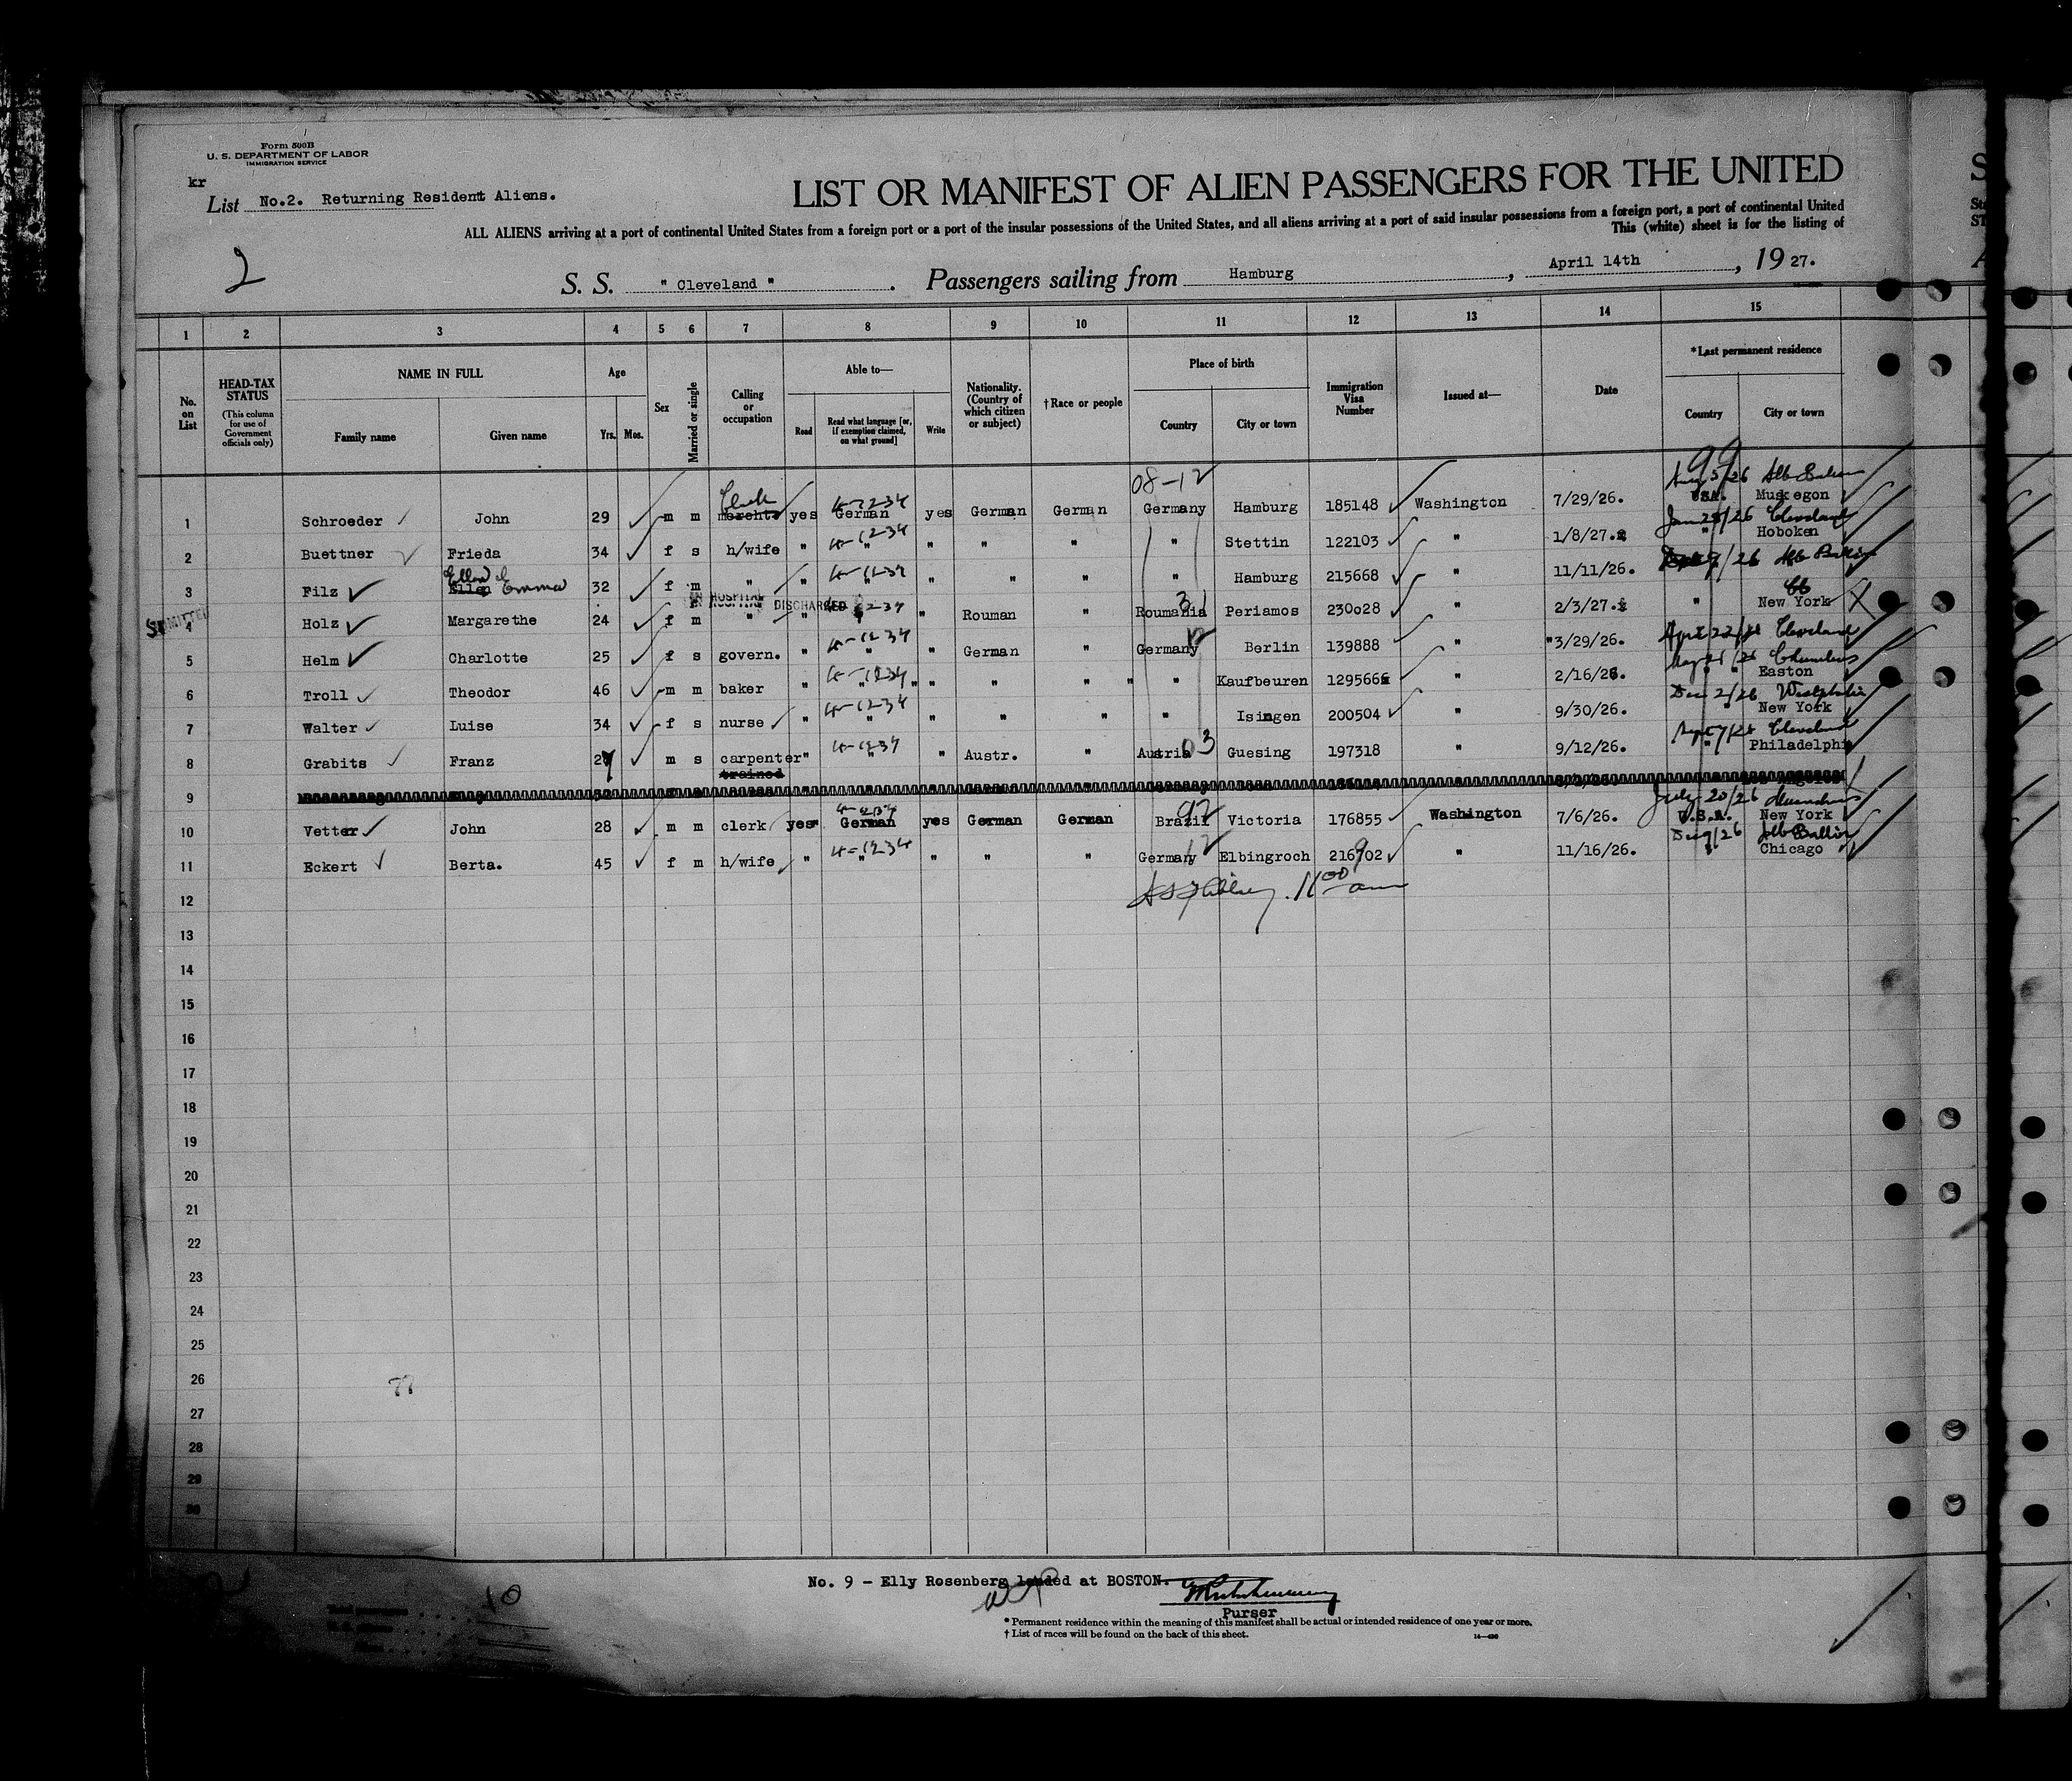 Form 500B
U. S. DEPARTMENT OF LABOR
IMMIGRATION SERVICE
kr
List No.2. Returning Resident Aliens.
LIST OR MANIFEST OF ALIEN PASSENGERS FOR THE UNITED
ALL ALIENS arriving at a port of continental United States from a foreign port or a port of the insular possessions of the United States, and all aliens arriving at a port of said insular possessions from a foreign port, a port of continental United
This (white) sheet is for the listing of
2
S. S. " Cleveland ". Passengers sailing from Hamburg, April 14th, 19 27.
1 2 3 4 5 6 7 8 9 10 11 12 13 14 15
No. on List
HEAD-TAX STATUS (This column for use of Government officials only)
NAME IN FULL
Family name Given name
Age
Yrs. Mos.
Sex
Married or single
Calling or occupation
Able to—
Read Read what language [or, if exemption claimed, on what ground] Write
Nationality. (Country of which citizen or subject)
†Race or people
Place of birth
Country City or town
Immigration Visa Number
Issued at—
Date
*Last permanent residence
Country City or town
99
08-12
1 Schroeder John 29 m m Clerk yes German yes German German Germany Hamburg 185148 Washington 7/29/26. USA. Muskegon
2 Buettner Frieda 34 f s h/wife " " " " " " Stettin 122103 " 1/8/27. " Hoboken
3 Filz Ellen Emma 32 f m " " " " " " " Hamburg 215668 " 11/11/26.
IN HOSPITAL DISCHARGED
ADMITTED
4 Holz Margarethe 24 f m " " " " Rouman " Roumania Periamos 230028 " 2/3/27. " New York
5 Helm Charlotte 25 f s govern. " " " German " Germany Berlin 139888 " "3/29/26.
6 Troll Theodor 46 m m baker " " " " " " Kaufbeuren 129566 " 2/16/26. " Easton
7 Walter Luise 34 f s nurse " " " " " " Isingen 200504 " 9/30/26. " New York
8 Grabits Franz 27 m s carpenter " " " Austr. " Austria Guesing 197318 " 9/12/26. " Philadelphia
trained
9
10 Vetter John 28 m m clerk yes German yes German German Brazil Victoria 176855 Washington 7/6/26. U.S.A. New York
11 Eckert Berta. 45 f m h/wife " " " " " Germany Elbingroch 216902 " 11/16/26. " Chicago
12
13
14
15
16
17
18
19
20
21
22
23
24
25
26
27
28
29
30
No. 9 - Elly Rosenberg landed at BOSTON.
Purser
* Permanent residence within the meaning of this manifest shall be actual or intended residence of one year or more.
† List of races will be found on the back of this sheet.
10